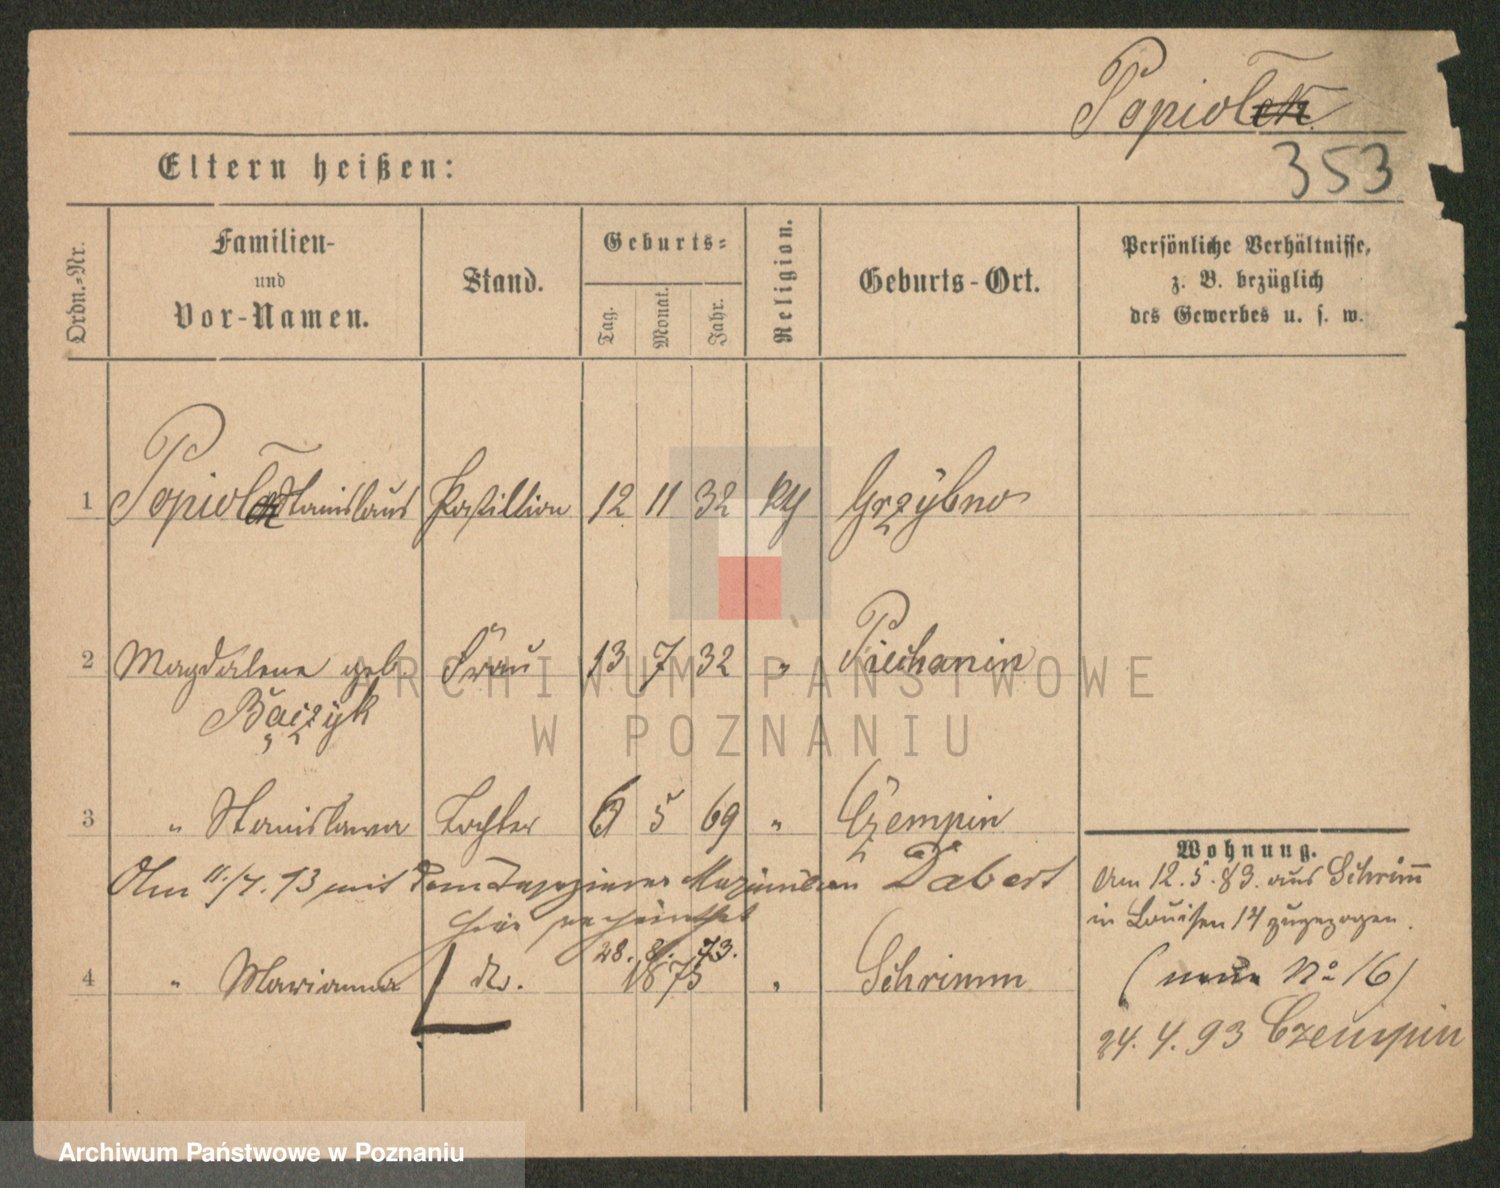 Popiolek
353
Eltern heißen:
Ordn.-Nr.
Familien-
und
Vor-Namen.
Stand.
Geburts-
Tag.
Monat.
Jahr.
Religion.
Geburts-Ort.
Persönliche Verhältnisse,
z. B. bezüglich
des Gewerbes u. s. w.
1 Popiolek Stanislaus Postillion 12 11 32 Grzybno
2 Magdalene geb Frau 13 7 32 " Piechanin
Bączyk
3 " Stanislawa Tochter 5 69 " Czempin
Am 11/7. 93 mit dem Tapezierer Maximilian Dabert
hier verheirathet
28. 8. 73.
4 " Marianna do. 1875 " Schrimm
Wohnung.
Am 12. 5. 83. aus Schrimm
in Louisen 14 zugezogen.
(neue No 16)
24. 4. 93 Czempin
ARCHIWUM PAŃSTWOWE
W POZNANIU
Archiwum Państwowe w Poznaniu